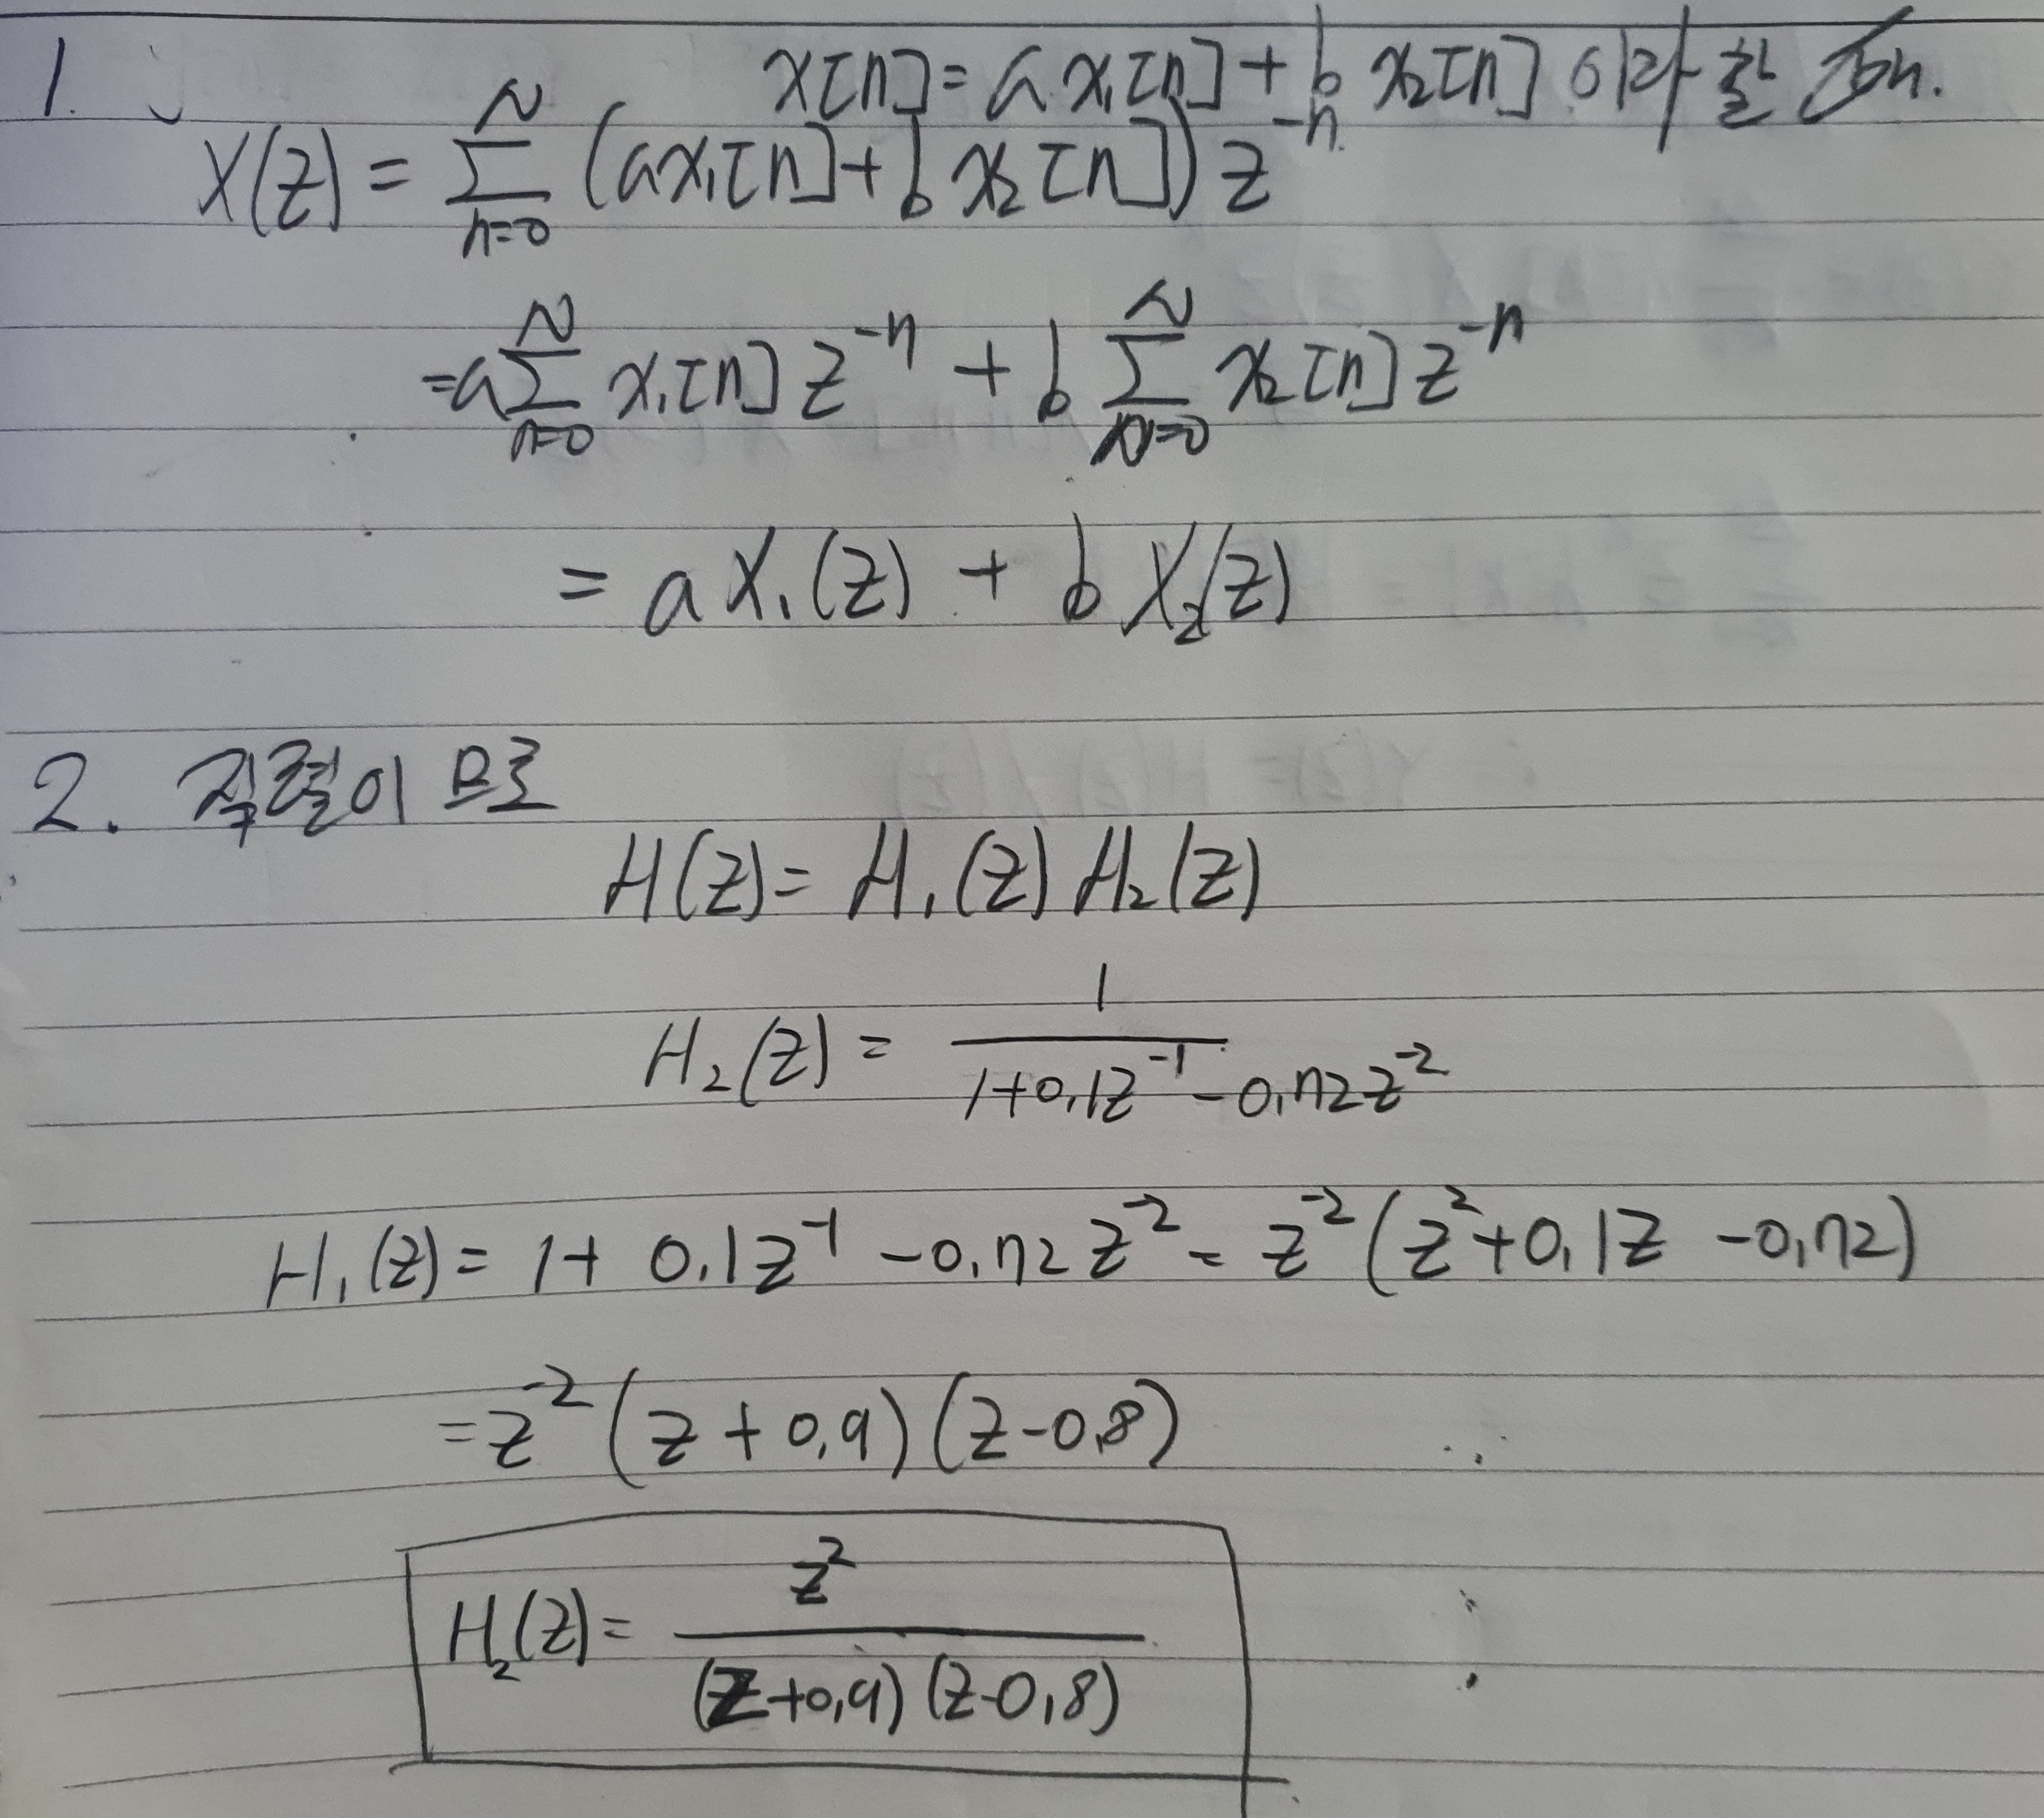 1. x[n] = a x₁[n] + b x₂[n] 이라 할 때.
X(z) = Σ_{n=0}^{N} (ax₁[n] + b x₂[n]) z^{-n}
= a Σ_{n=0}^{N} x₁[n] z^{-n} + b Σ_{n=0}^{N} x₂[n] z^{-n}
= a X₁(z) + b X₂(z)
2. 직렬이므로
H(z) = H₁(z) H₂(z)
H₂(z) = 1 / (1+0.1z^{-1} - 0.72z^{-2})
H₁(z) = 1 + 0.1z^{-1} - 0.72z^{-2} = z^{-2}(z²+0.1z - 0.72)
= z^{-2}(z+0.9)(z-0.8)
H₂(z) = z² / (z+0.9)(z-0.8)